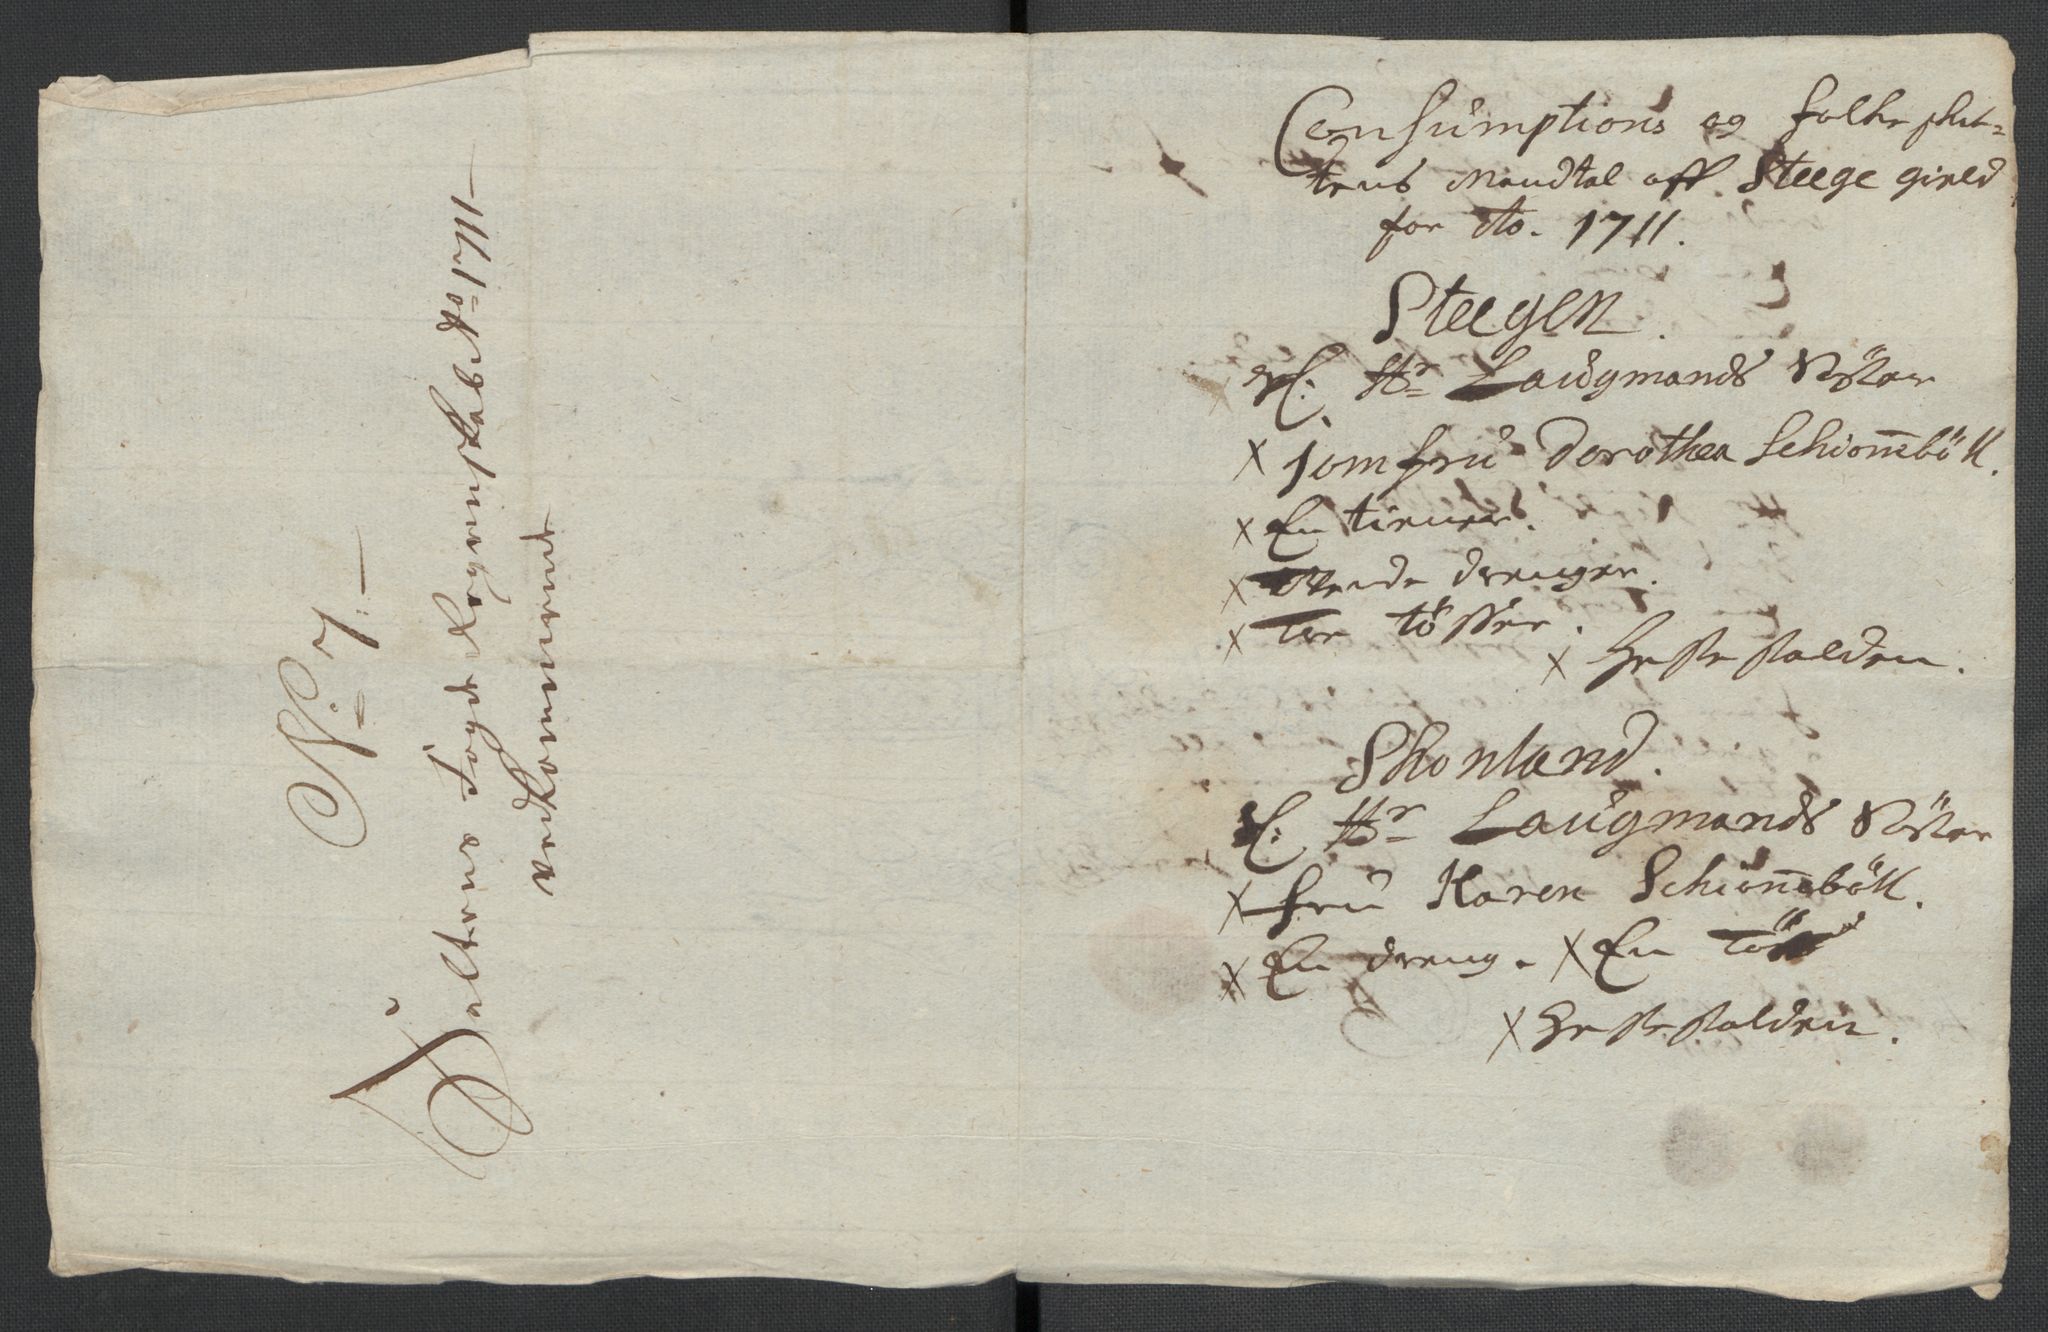 No. 7.
Saltens Fogde Regenskab Ao 1711
vedkommende
Consumptions og folke skat=
tens Mandtal aff Steege gield
for Ao. 1711.
Steegen.
Sl. Hr Laugmands Söster
x Jomfru Dorothea Schionnebóll.
x En tiener.
x drenger.
x Tre tösser. x Heste stalden.
Skonland.
Sl. Hr Laugmands Söster
x Fru Karen Schionnebóll.
x En dreng. x En Tös
x Heste stalden.